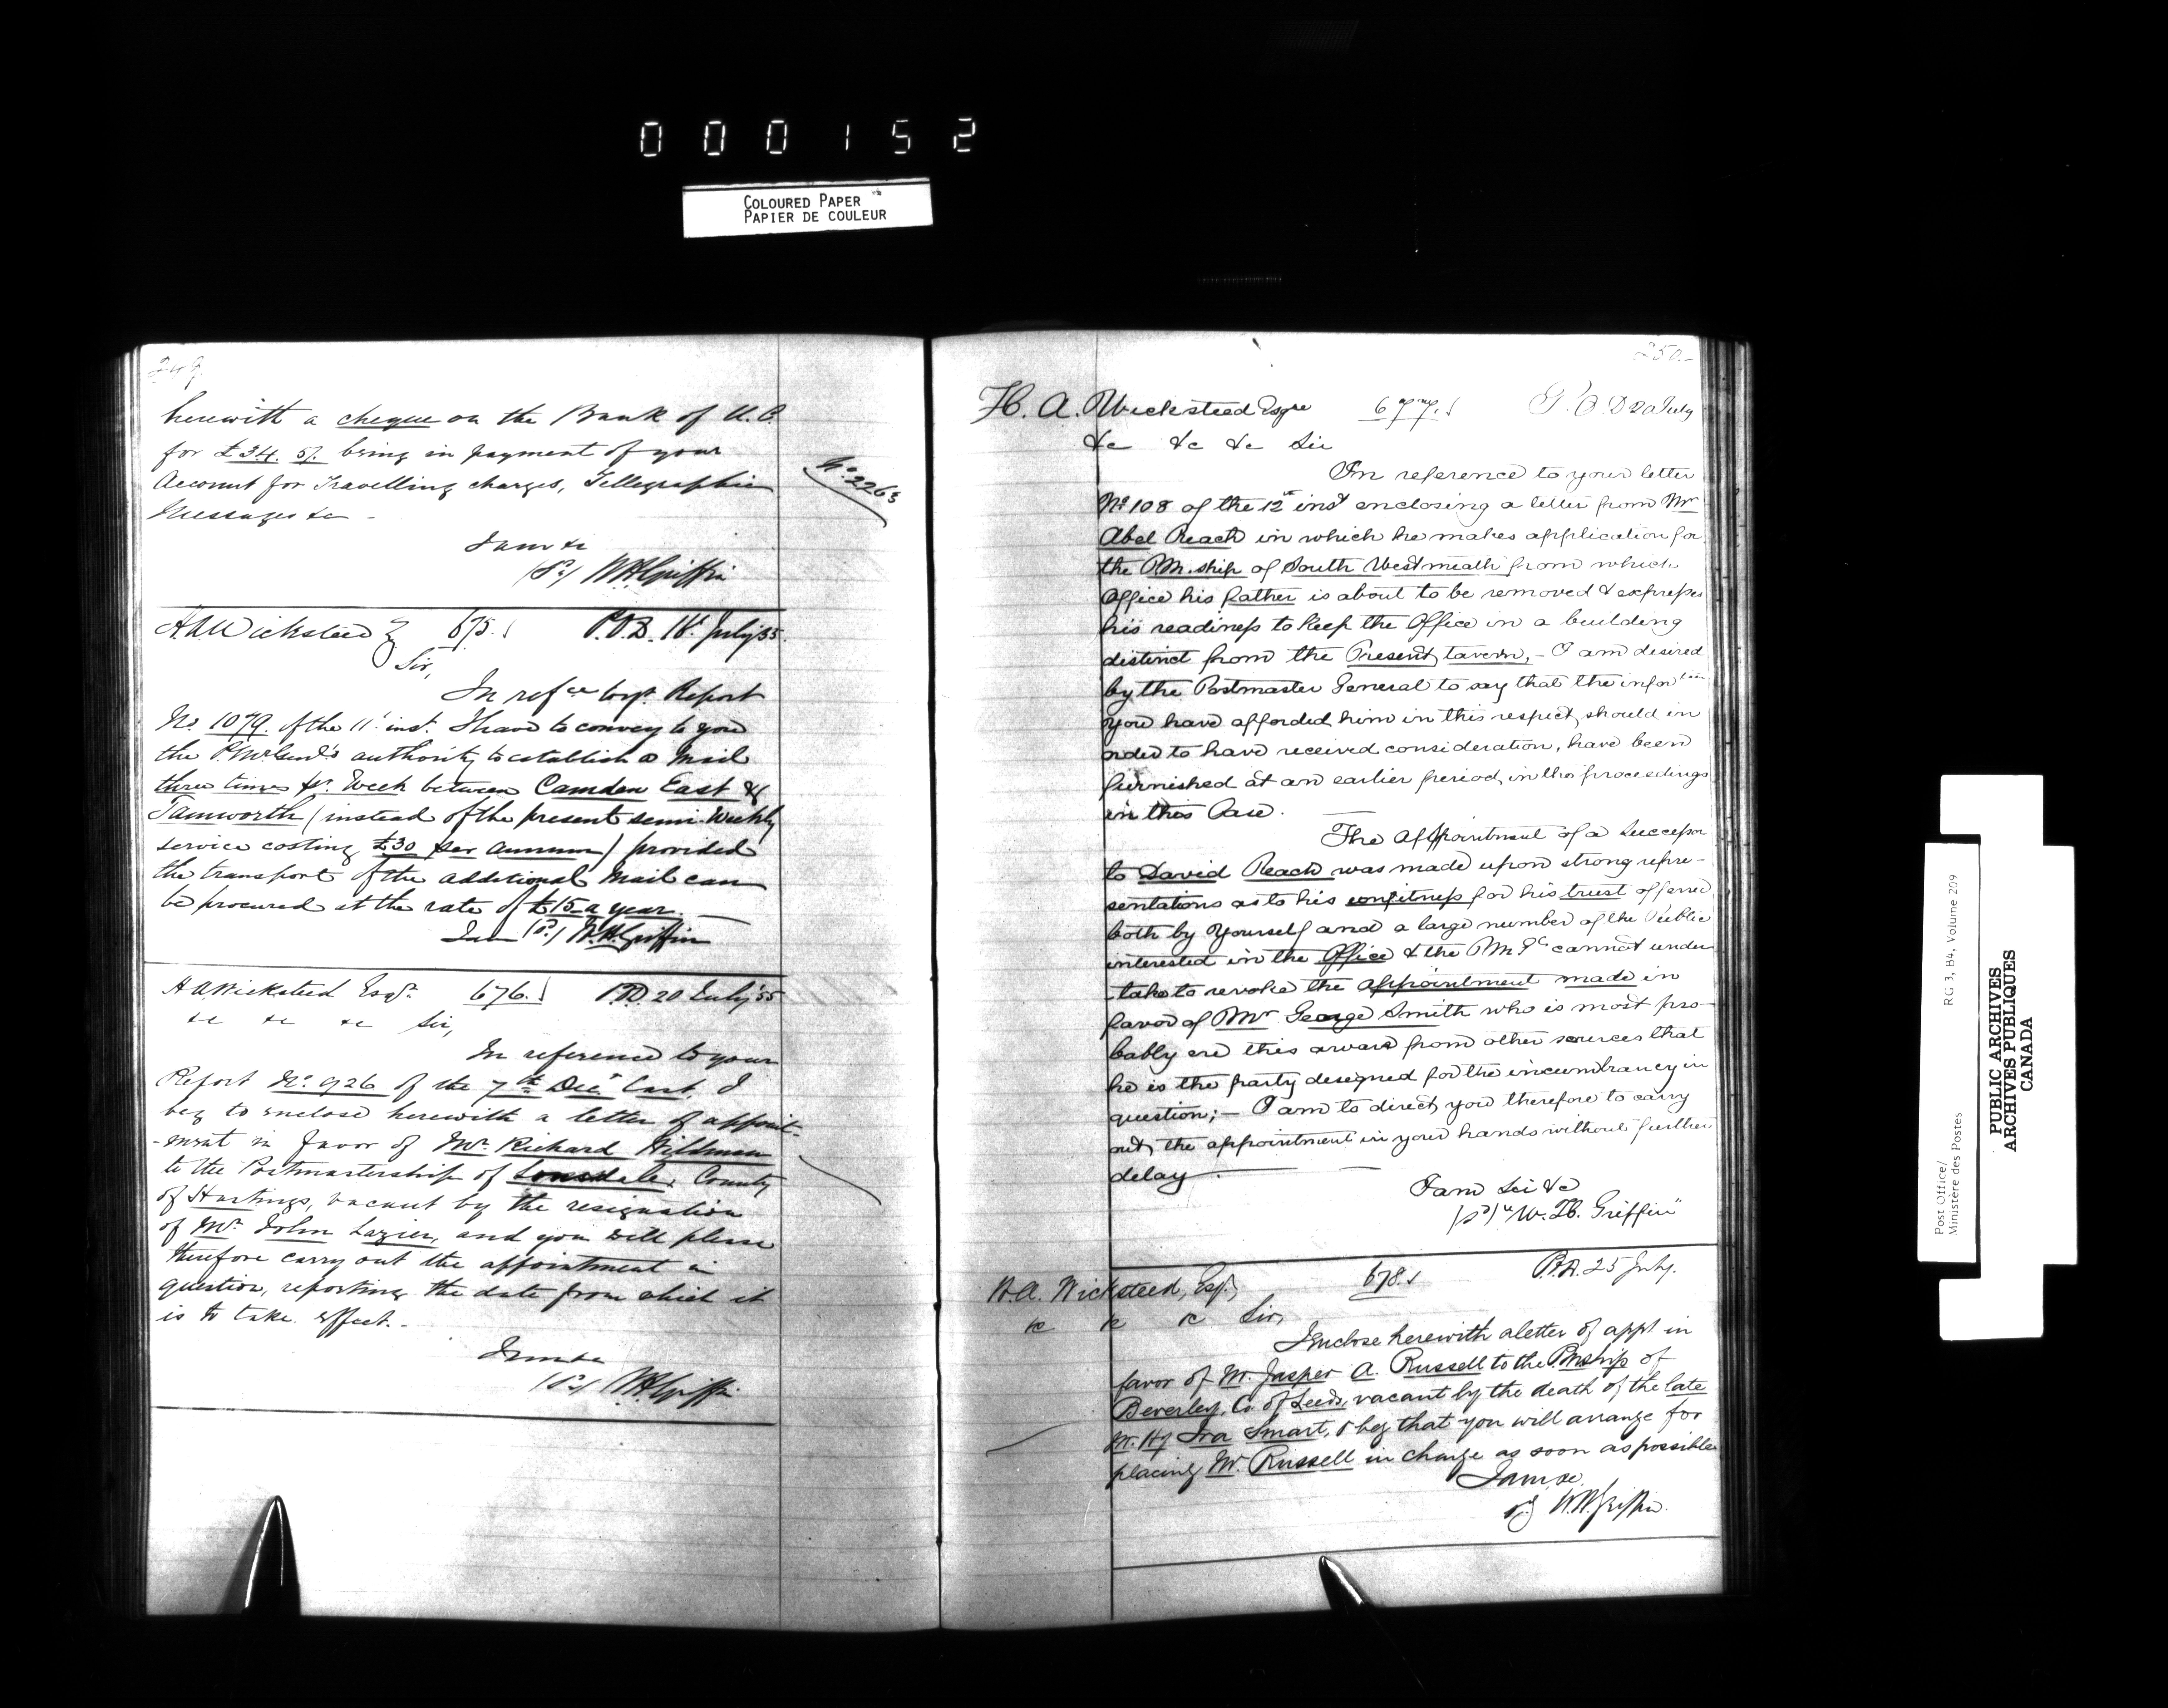 000152
COLOURED PAPER
PAPIER DE COULEUR
249.
herewith a cheque on the Bank of U.C.
for £34. 5/. being in payment of your
Account for Travelling charges, Tellegraphic
Messages &c -
I am &c
W H Griffin
No. 2265
H A Wicksteed 675. P.O.D. 18t July 55.
Sir,
In refce to yr. Report
No. 1079. of the 11t inst. I have to convey to you
the P. Mr. Genl's authority to establish a Mail
three times pr. Week between Camden East &
Tamworth (instead of the present semi-Weekly
service costing £30 per annum) provided
the transport of the additional Mail can
be procured at the rate of £15 a year. —
I am W. H. Griffin
H A Wicksteed Esqr. 676. P.D. 20 July 55
&c &c &c Sir,
In reference to your
Report No. 926 of the 7th Decr last, I
beg to enclose herewith a letter of appoint-
-ment in favor of Mr. Richard
to the Postmastership of Lonsdale, County
of Hastings, vacant by the resignation
of Mr. John Lazier, and you will please
therefore carry out the appointment in
question, reporting the date from which it
is to take effect. -
I am &c
W H Griffin
250.-
H. A. Wicksteed Esqre 677. P.O.D 20 July
&c &c &c Sir
In reference to your letter
No 108 of the 12th inst enclosing a letter from Mr
Abel Reach in which he makes application for
the P.M. ship of South Westmeath from which
Office his father is about to be removed & expresses
his readiness to keep the Office in a building
distinct from the Present tavern, - I am desired
by the Postmaster General to say that the
you have afforded him in this respect, should in
order to have received consideration, have been
furnished at an earlier period, in the proceedings
in this Case. —
The Appointment of a Successor
to David Reach was made upon strong repre-
sentations as to his unfitness for his trust offered
both by Yourself and a large number of the Public
interested in the Office & the P M Gl cannot under
take to revoke the appointment made in
favor of Mr George Smith who is most pro-
bably ere this aware from other sources that
he is the party designed for the incumbrancy in
question; - I am to direct you therefore to carry
out, the appointment in your hands without further
delay .— —
I am Sir &c
"W. H. Griffin"
H.A. Wicksteed, Esqr., 678. P.D. 25 July.
&c &c &c Sir,
I enclose herewith a letter of appt in
favor of Mr. Jasper A. Russell to the Pmship of
Beverley, Co. of Leeds, vacant by the death of the late
Mr. Hy Ira Smart, & beg that you will arrange for
placing Mr. Russell in charge as soon as possible
I am &c
W. H. Griffin.
Post Office/
Ministère des Postes
RG 3, B4, Volume 209
PUBLIC ARCHIVES
ARCHIVES PUBLIQUES
CANADA